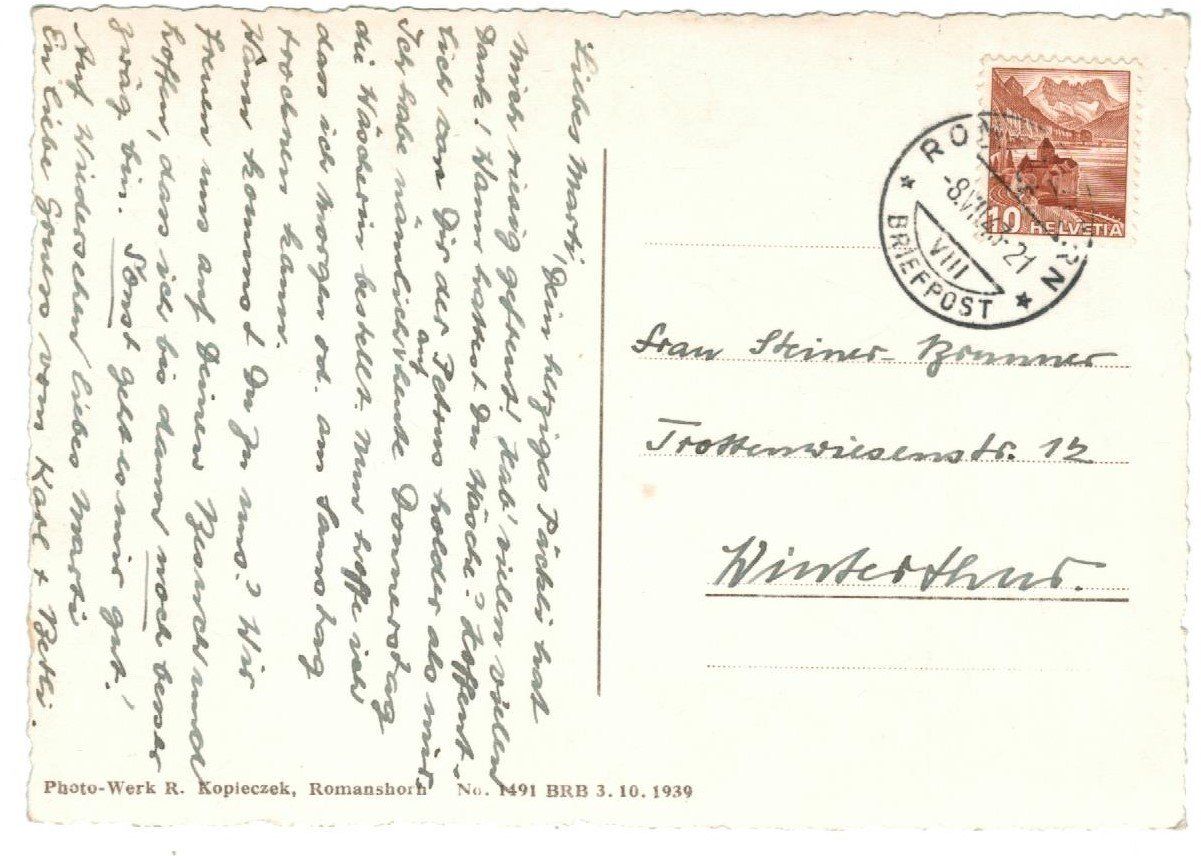 Liebes Marti,
Dein herziges Päckli hat
mich riesig gefreut! Hab' vielen vielen
Dank! Wann hattest Du Wäsche? Hoffent-
lich war Dir der Petrus holder als mir.
Ich habe nämlich auf heute Donnerstag
die Wäscherin bestellt. Nun hoffe ich
dass ich morgen od. am Samstag
trocknen kann.
Wann kommst Du zu uns? Wir
freuen uns auf Deinen Besuch und
hoffen, dass ich bis dann noch besser
zwäg bin. Sonst geht es mir gut!
Auf Wiedersehen liebes Marti
En liebe Gruss vom Karl + Betli.
ROMANSHORN
-8.VII. -21
VIII
BRIEFPOST
10 HELVETIA
Frau Steiner-Brunner
Trottenwiesenstr. 12
Winterthur.
Photo-Werk R. Kopieczek, Romanshorn No. 1491 BRB 3.10.1939